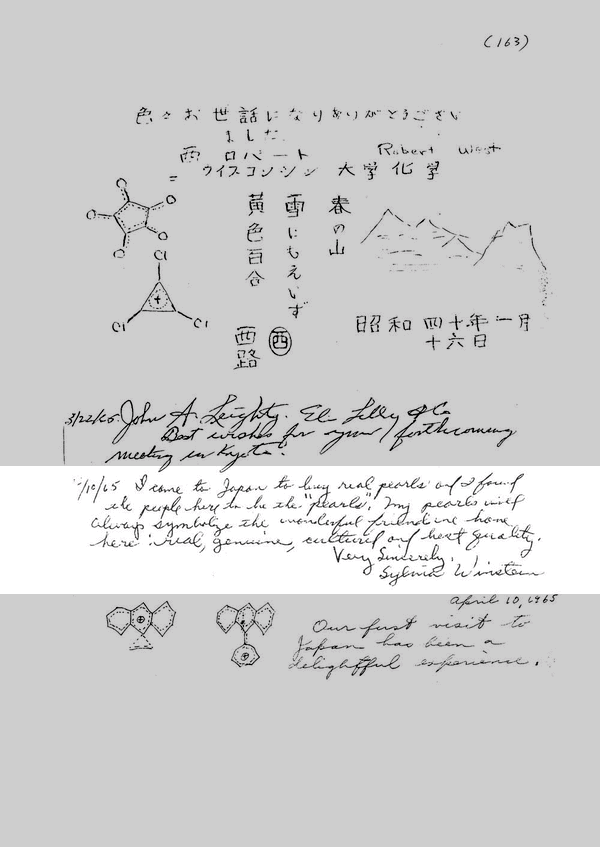 (163)
色々お世話になりありがとうござい
ました
西 ロバート Robert West
ウイスコンシン 大学 化学
春の山
雪にもえいず
黄色百合
西路
西
昭和四十年一月
十六日
O
O
O
O
O
Cl
Cl
Cl
+
3/22/65. John A. Leighty. Eli Lilly & Co
Best wishes for your forthcoming
meeting in Kyoto!
/10/65 I came to Japan to buy real pearls and I found
the people here to be the "pearls". My pearls will
always symbolize the wonderful friends we have
here: real, genuine, cultured and best quality.
Very Sincerely,
Sylvia Winstein
April 10, 1965
Our first visit to
Japan has been a
delightful experience.
+
+